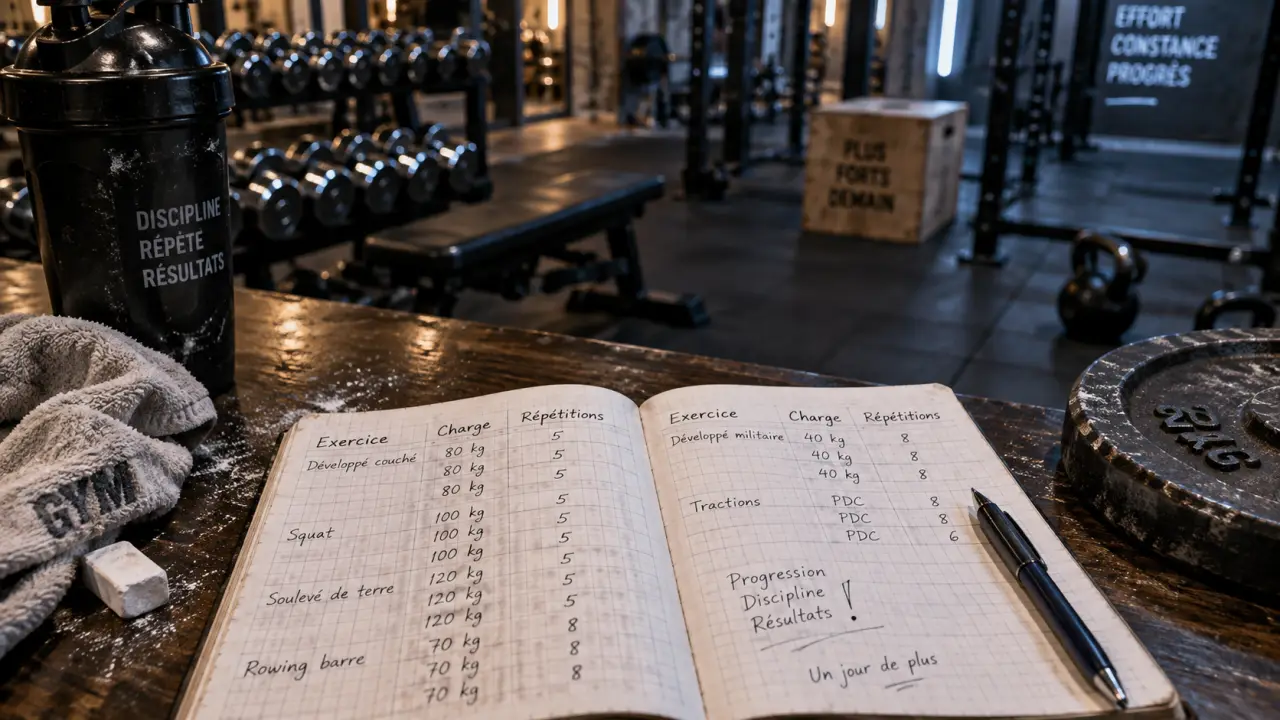 EFFORT
CONSTANCE
PROGRÈS
PLUS
FORTS
DEMAIN
DISCIPLINE
RÉPÈTE
RÉSULTATS
GYM
Exercice Charge Répétitions
Développé couché 80 kg 5
80 kg 5
80 kg 5
Squat 100 kg 5
100 kg 5
100 kg
Soulevé de terre 120 kg 5
120 kg 5
120 kg 5
Rowing barre 70 kg 8
70 kg 8
70 kg 8
Exercice Charge Répétitions
Développé militaire 40 kg 8
40 kg 8
40 kg 8
Tractions PDC 8
PDC 8
PDC 6
Progression
Discipline
Résultats !
Un jour de plus